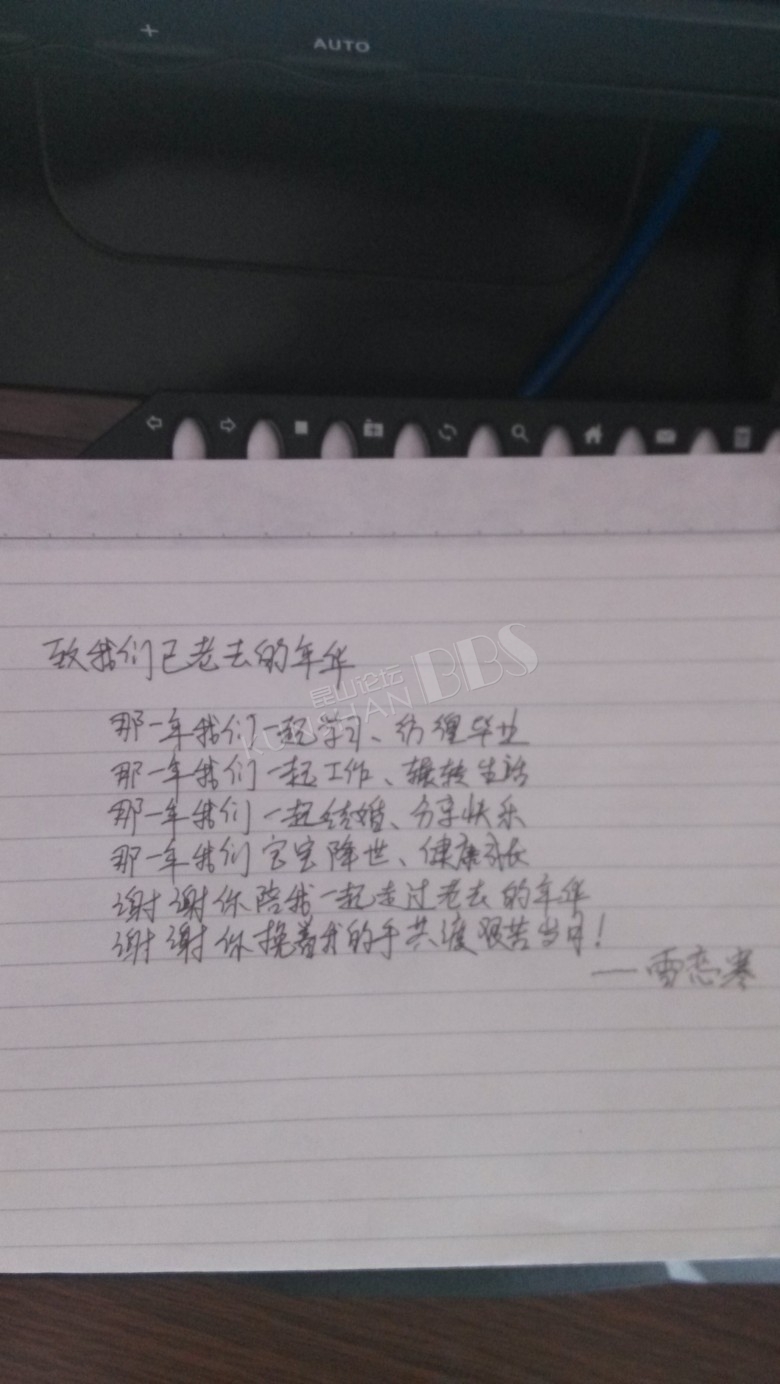 +
AUTO
致我们已老去的年华
昆山论坛
KUNSHAN BBS
那一年我们一起学习、彷徨毕业
那一年我们一起工作、辗转生活
那一年我们一起结婚、分享快乐
那一年我们宝宝降世、健康成长
谢谢你陪我一起走过老去的年华
谢谢你挽着我的手共渡艰苦岁月!
——雪恋寒